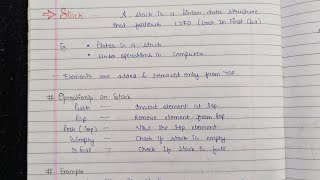 → Stack — A stack is a linear data structure
that follows LIFO (Last In First Out)
Ex. • Plates in a stack
• Undo operations in computer
Elements are added & removed only from TOP.
# Operations on Stack
Push — Insert element at top
Pop — Remove element from top
Peek (Top) — View the top element
isEmpty — Check if stack is empty
isFull — Check if stack is full
# Example